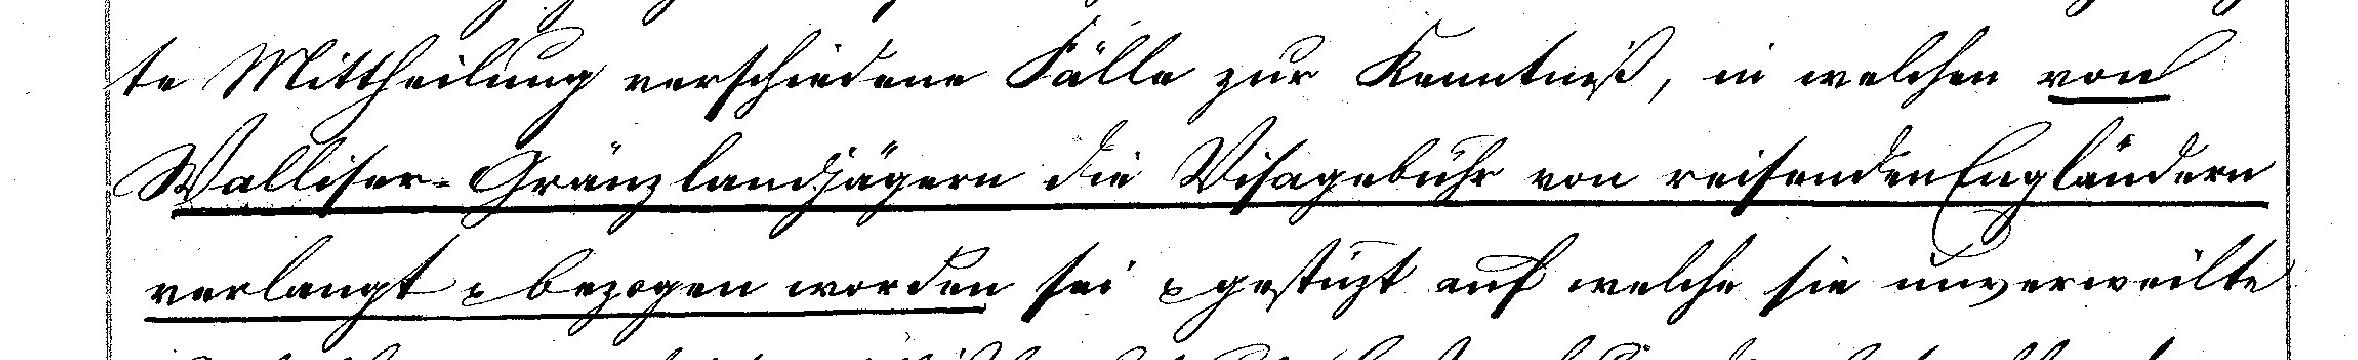 te Mittheilung verschiedene Fälle zur Kenntniß, in welchen von
Walliser-Gränzlandjägern die Visagebühr von reisenden Engländern
verlangt & bezogen worden sei & gestüzt auf welche sie unverweilte